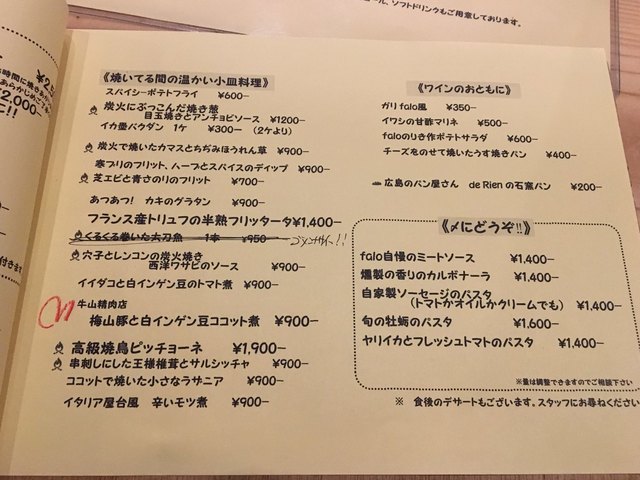 ール、ソフトドリンクもご用意しております。
《焼いてる間の温かい小皿料理》
スパイシーポテトフライ ¥600−
炭火にぶっこんだ焼き葱
目玉焼きとアンチョビソース ¥1200−
イカ墨パウダン 1ケ ¥300− (2ケより)
炭火で焼いたカマスとちぢみほうれん草 ¥900−
寒ブリのフリット、ハーブとスパイスのディップ ¥900−
芝エビと青さのりのフリット ¥700−
あつあつ! カキのグラタン ¥900−
フランス産トリュフの半熟フリッタータ¥1,400−
くるくる巻いた太刀魚 1本 ¥950−
穴子とレンコンの炭火焼き
西洋ワサビのソース ¥900−
イイダコと白インゲン豆のトマト煮 ¥900−
牛山精肉店
梅山豚と白インゲン豆ココット煮 ¥900−
高級焼鳥ピッチョーネ ¥1,900−
串刺しにした王様椎茸とサルシッチャ ¥900−
ココットで焼いた小さなラザニア ¥900−
イタリア屋台風 辛いモツ煮 ¥900−
《ワインのおともに》
ガリfalo風 ¥350−
イワシの甘酢マリネ ¥500−
faloのりき作ポテトサラダ ¥600−
チーズをのせて焼いたうす焼きパン ¥400−
広島のパン屋さん de Rienの石窯パン ¥200−
《〆にどうぞ!!》
falo自慢のミートソース ¥1,400−
燻製の香りのカルボナーラ ¥1,400−
自家製ソーセージのパスタ
(トマトかオイルかクリームでも) ¥1,400−
旬の牡蛎のパスタ ¥1,600−
ヤリイカとフレッシュトマトのパスタ ¥1,400−
※量は調整できますのでご相談下さい
※ 食後のデザートもございます。スタッフにお尋ねください